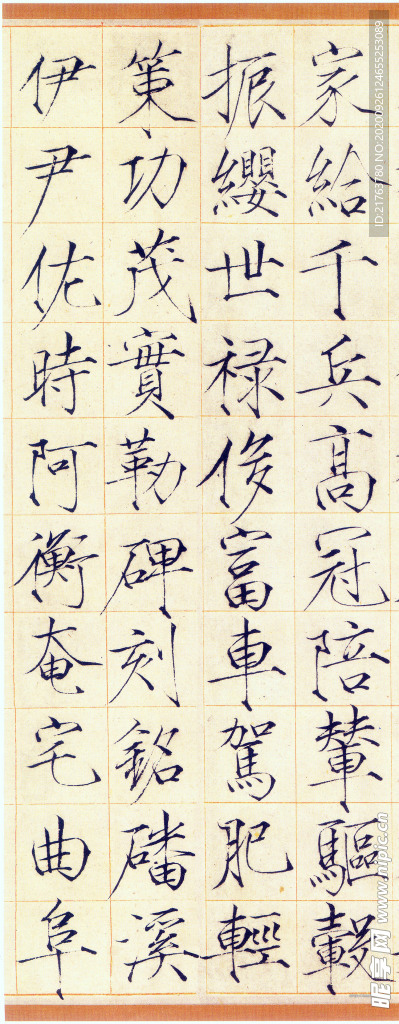 家給千兵高冠陪輦驅轂
振纓世禄侈富車駕肥輕
策功茂實勒碑刻銘磻溪
伊尹佐時阿衡奄宅曲阜
ID:21763780 NO:20200926124655253089
昵享网 www.nipic.cn